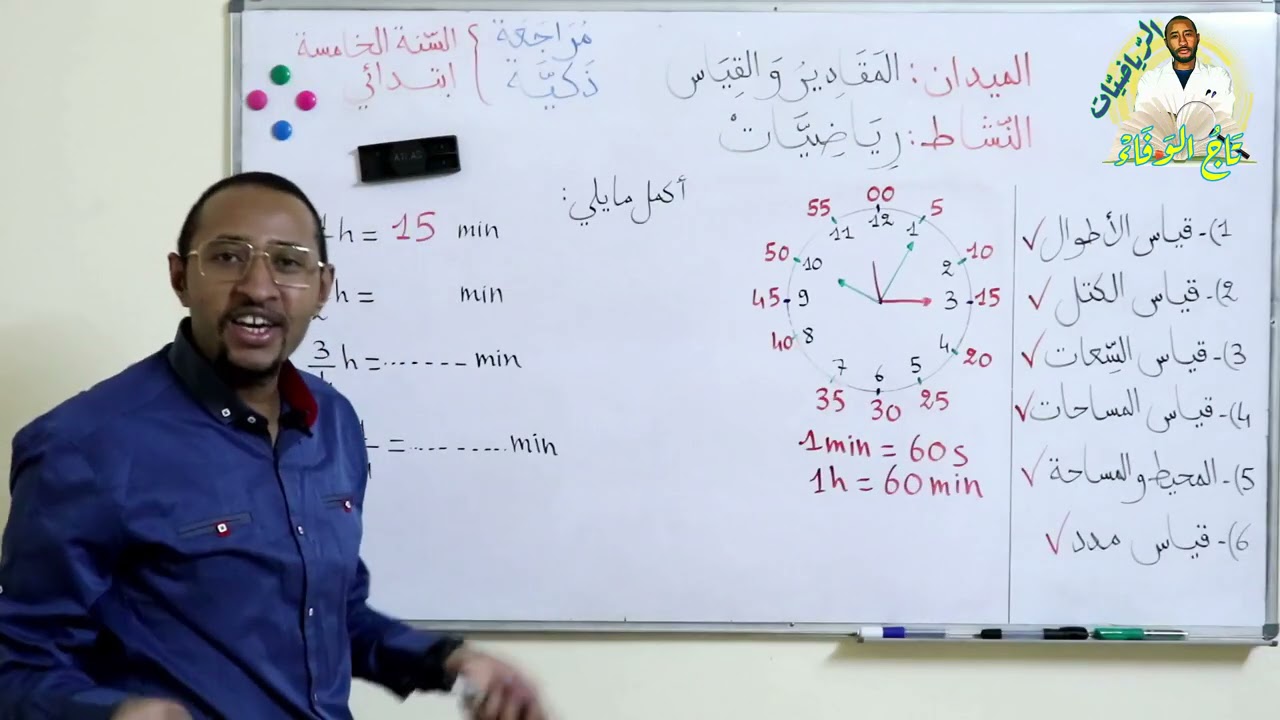 الميدان: المَقَادِيرُ وَ القِيَاس
النّشاط: رِيَاضِيَّاتْ
مُرَاجَعَة
ذَكِيَّة
السّنة الخامسة
ابتدائي
الرّياضيّات
تَاجُ الوَفَاءْ
ATLAS
1)- قياس الأطوال ✓
2)- قياس الكتل ✓
3)- قياس السِّعات ✓
4)- قياس المساحات ✓
5)- المحيط والمساحة ✓
6)- قياس مدد ✓
00
55 5
50 10
45 15
40 20
35 30 25
12
11 1
10 2
9 3
8 4
7 6 5
1min = 60s
1h = 60min
أكمل مايلي:
h = 15 min
h = min
3 h = ....... min
= ......... min